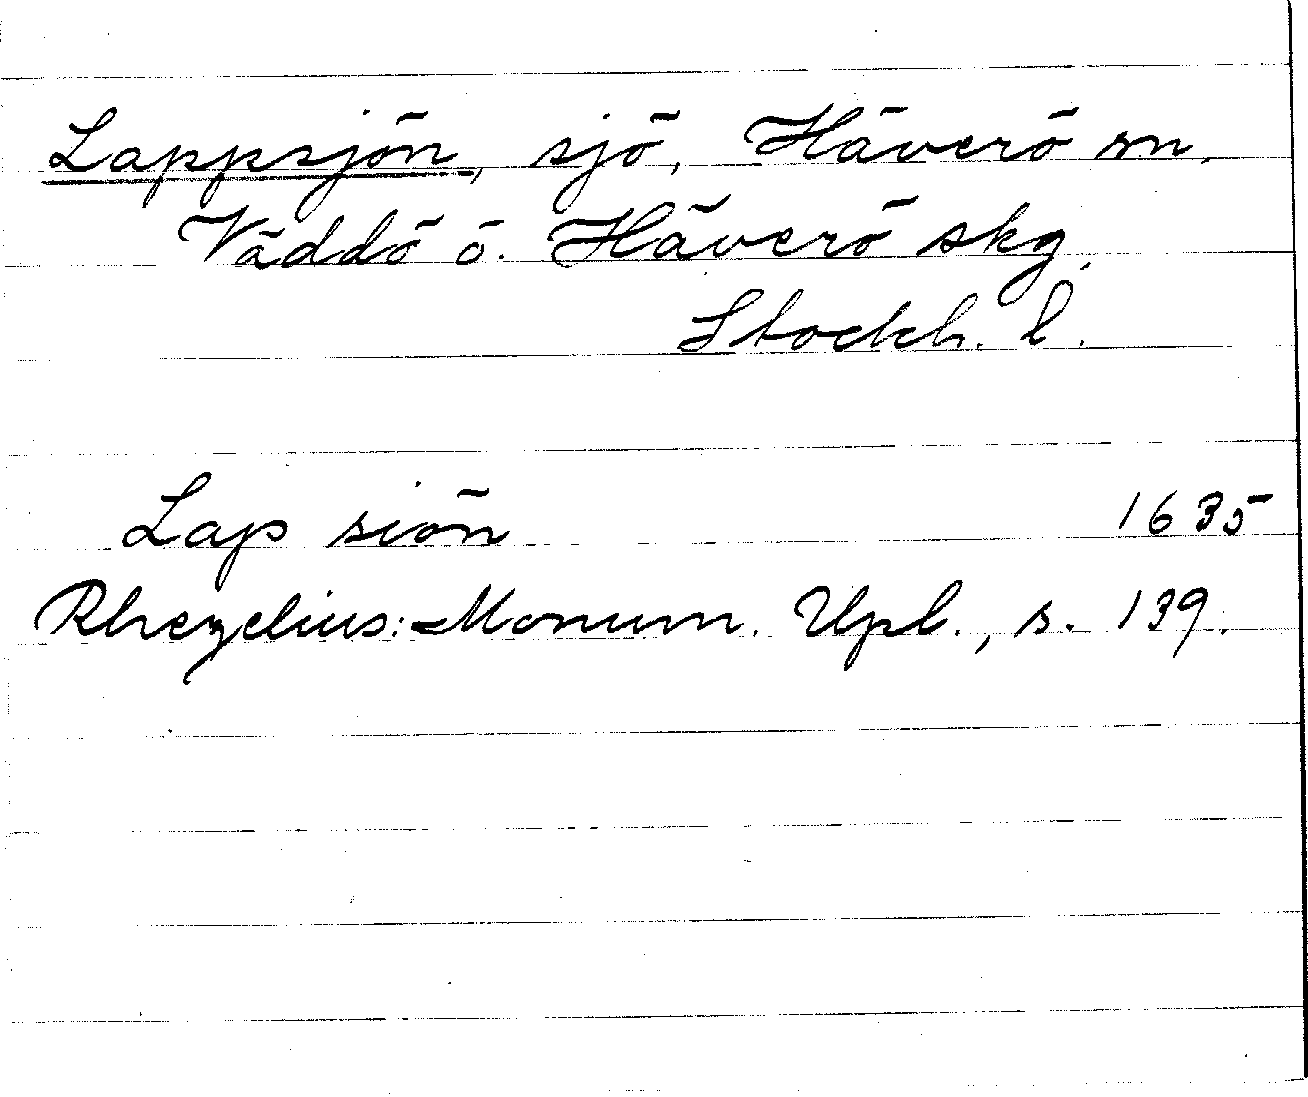 Lappsjön, sjö, Häverö sn.
Väddö o. Häverö skg.
Stockh. l.
Lap siön 1635
Rhezelius: Monum. Upl., s. 139.